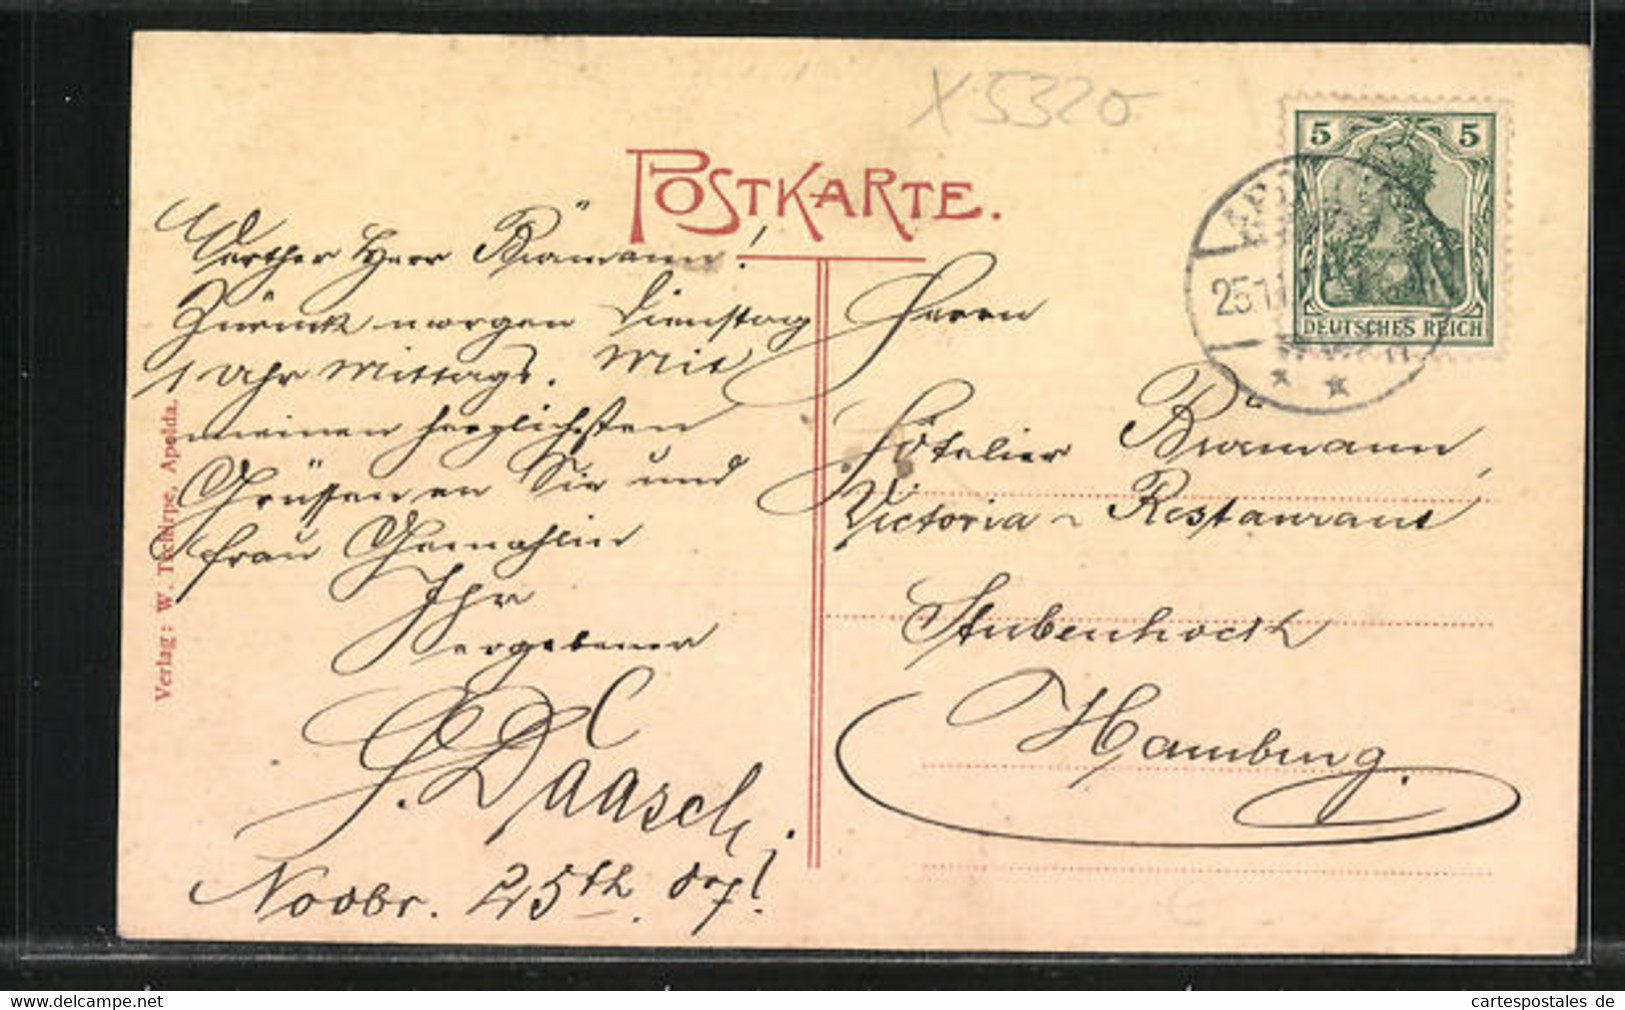 X5320
POSTKARTE.
5 5
DEUTSCHES REICH
25.11
Werther Herr Burmann!
Zurück morgen Dienstag
1 Uhr Mittags. Mit
meinen herzlichsten
Grüssen an Sie und
Frau Gemahlin
Ihr
ergebener
C
G. Daasch.
Novbr. 25th
Herrn
Hôtelier Burmann,
Victoria-Restaurant
Stubenhock
Hamburg.
Verlag: W. Tschirpe, Apolda.
cartespostales de